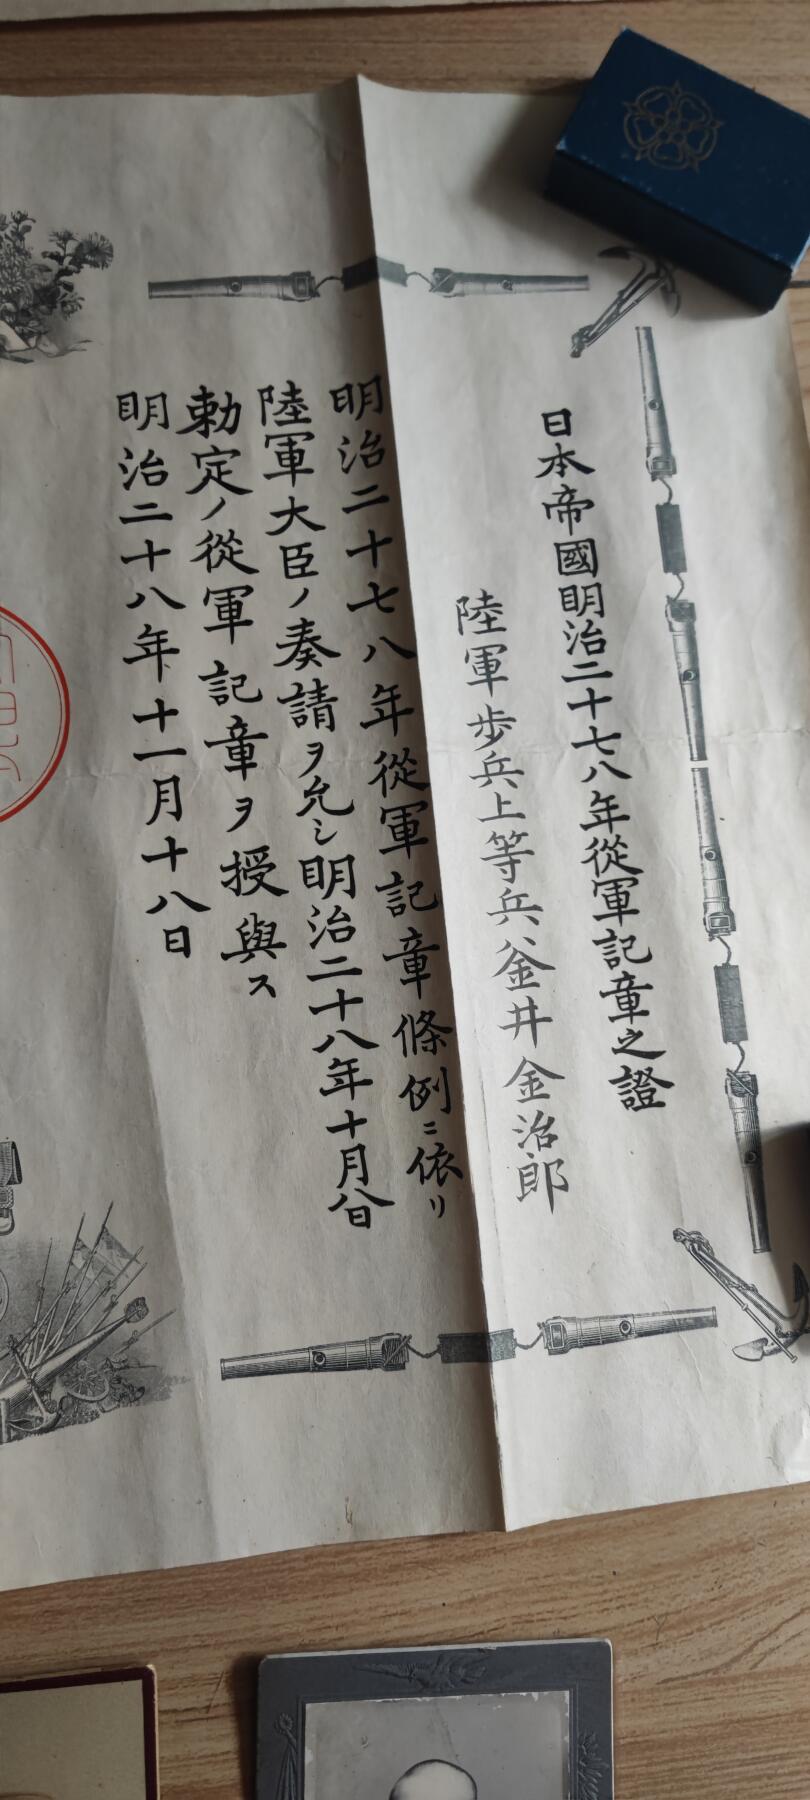 日本帝國明治二十七八年從軍記章之證
陸軍歩兵上等兵釜井金治郎
明治二十七八年從軍記章條例ニ依リ
陸軍大臣ノ奏請ヲ允シ明治二十八年十月八日
勅定ノ從軍記章ヲ授與ス
明治二十八年十一月十八日